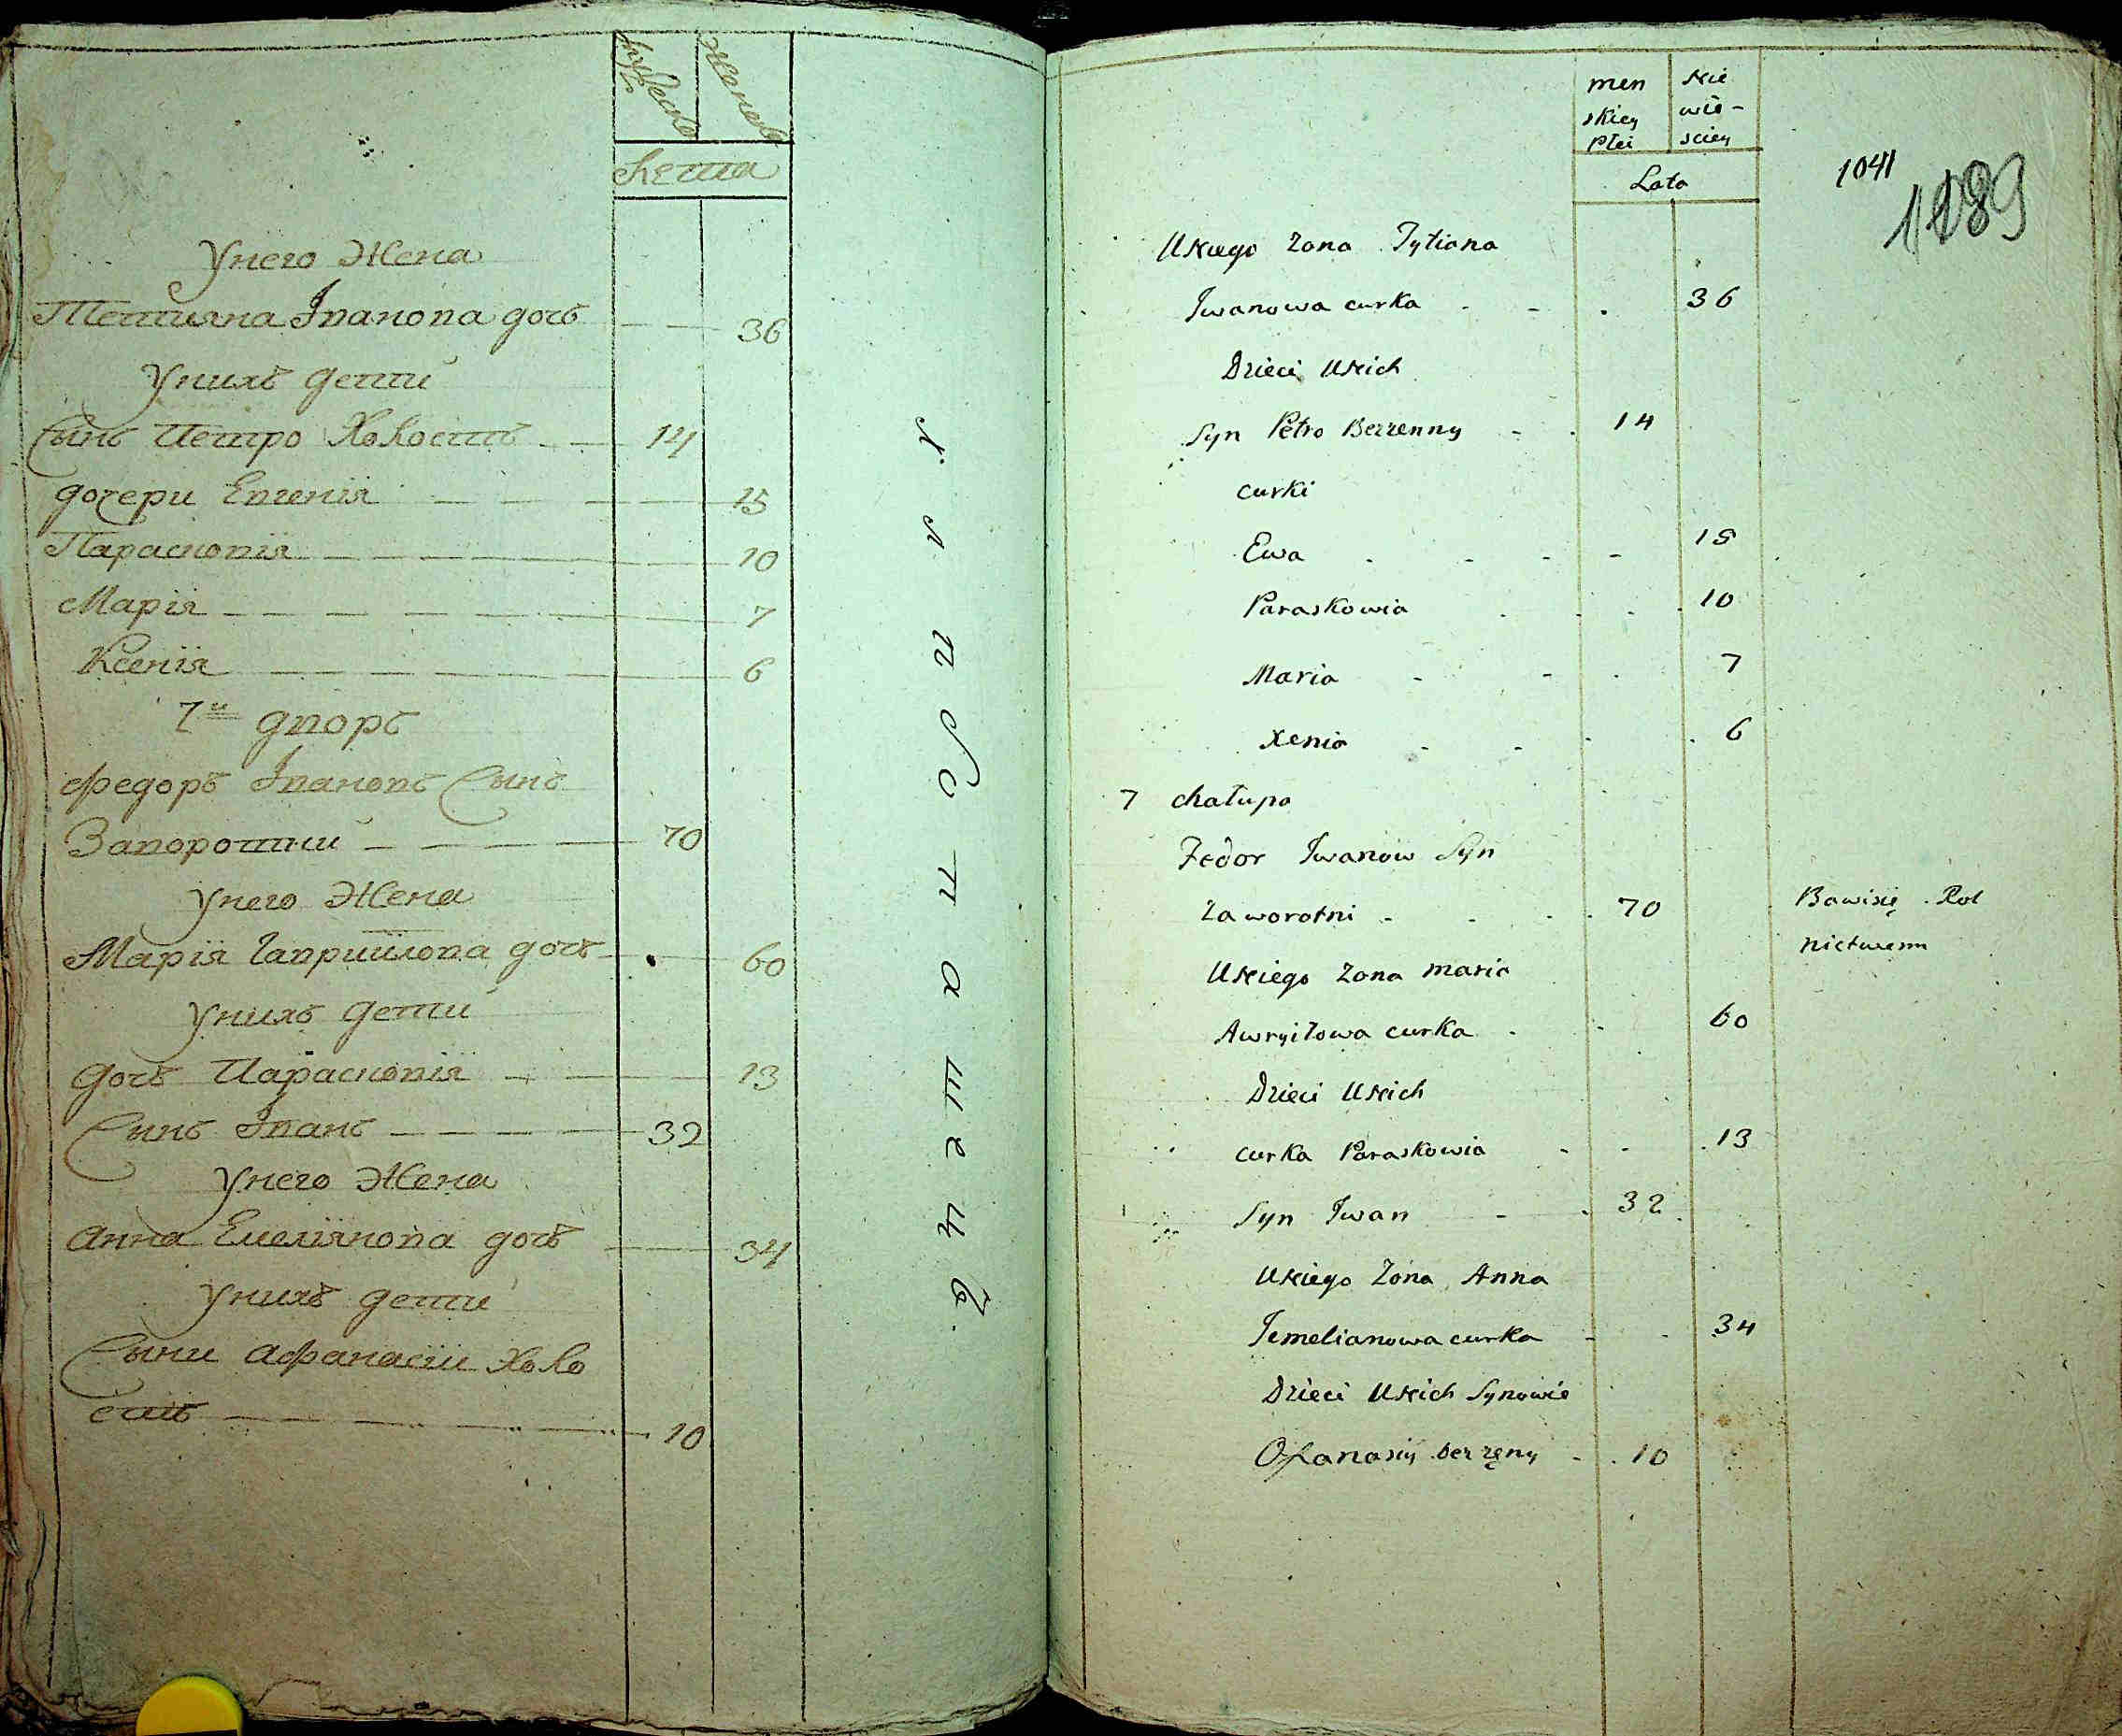 мужеска
женска
Лета
У него Жена
Тетияна Іванова дочь 36
У нихъ дети
Сынъ Петро Холостъ 14
дочери Евгенія 15
Парасковія 10
Марія 7
Ксенія 6
7й дворъ
Федоръ Івановъ Сынъ
Заворотній 70
У него Жена
Марія Гавриилова дочь 60
У нихъ дети
дочь Парасковія 13
Сынъ Іванъ 32
У него Жена
Анна Емеліянова дочь 34
У нихъ дети
Сыни Афанасій Холо
стъ 10
men
skiey
Płci
Nie
wie-
sciey
Lata
1041
1189
U Niego Zona Tytiana
Iwanowa curka 36
Dzieci U Nich
Syn Petro Bezzenny 14
curki
Ewa 15
Paraskowia 10
Maria 7
Xenia 6
7 chałupa
Fedor Iwanow Syn
Zaworotni 70 Bawi się Rol
nictwem
U Niego Zona Maria
Awryiłowa curka 60
Dzieci U Nich
curka Paraskowia 13
Syn Iwan 32
U Niego Zona Anna
Jemelianowa curka 34
Dzieci U Nich Synowie
Ofanasiy bezzęny 10